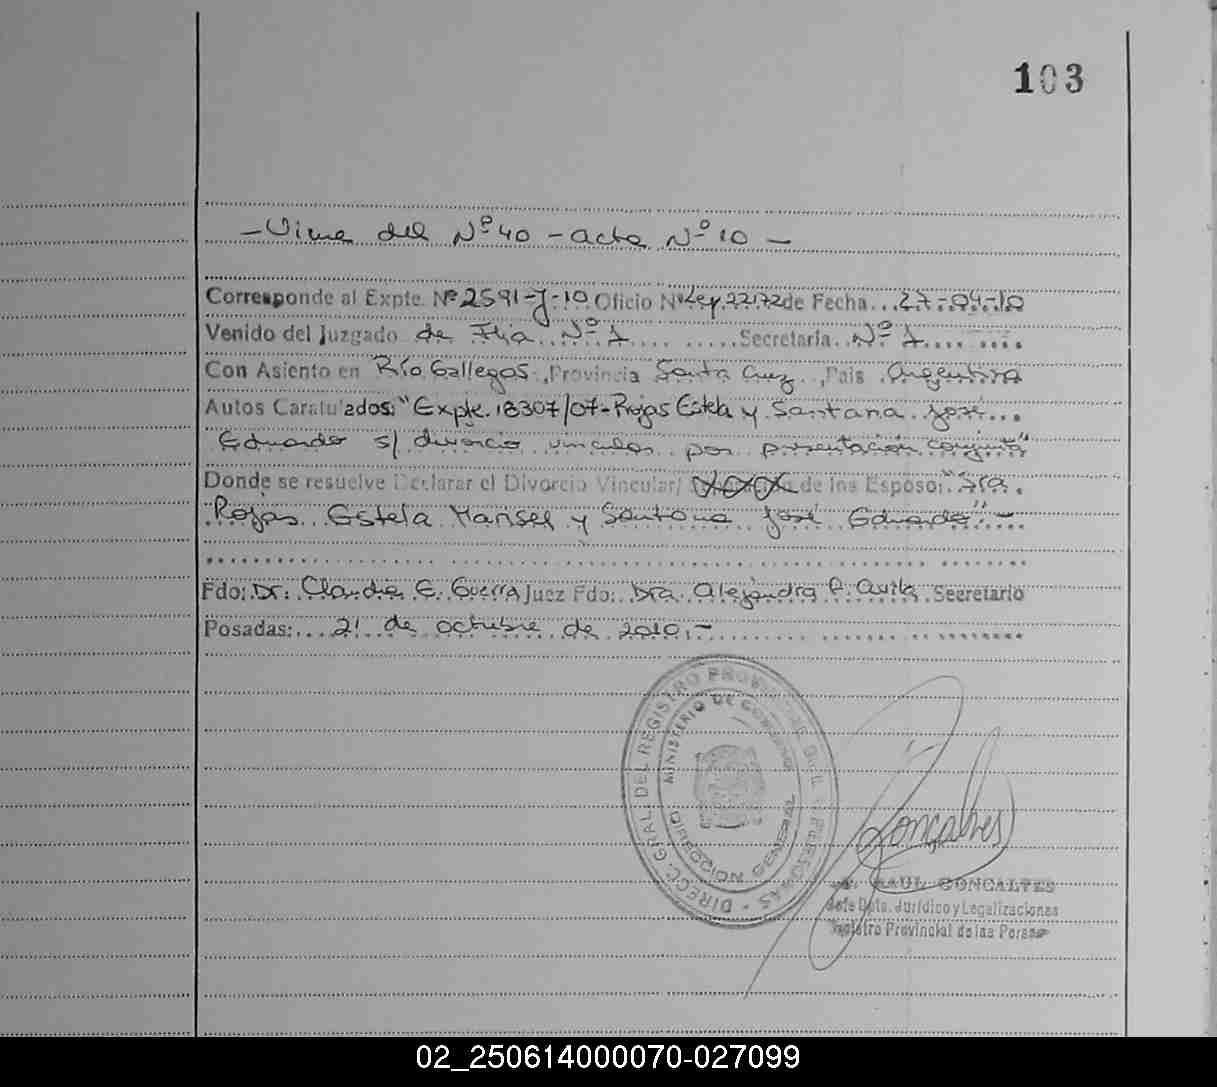 103
- Viene del Nº 40 - acta Nº 10 -
Corresponde al Expte. Nº 2591-J-10 Oficio Nº Ley 22172 de Fecha... 27-04-10
Venido del Juzgado de Flia. Nº 1 .... Secretaria. Nº 1....
Con Asiento en Río Gallegos., Provincia Santa Cruz ., País . Argentina
Autos Caratulados: "Expte. 18307/07 - Rojas Estela y Santana José
Eduardo s/ divorcio vincular por presentación conjunta"
Donde se resuelve Declarar el Divorcio Vincular/ de los Esposo: "Sra.
Rojas Estela Marisel y Santana José Eduardo" -
Fdo: Dr. Claudia E. Guerra Juez Fdo: Dra. Alejandra P. Avila Secretario
Posadas:... 21 de octubre de 2010.-
DIREC. GRAL. DEL REGISTRO PROV. DE LAS PERSONAS
MINISTERIO DE GOBIERNO
DIRECCION GENERAL
Goncalves
RAUL GONCALVES
Jefe Dpto. Jurídico y Legalizaciones
Registro Provincial de las Personas
02_250614000070-027099